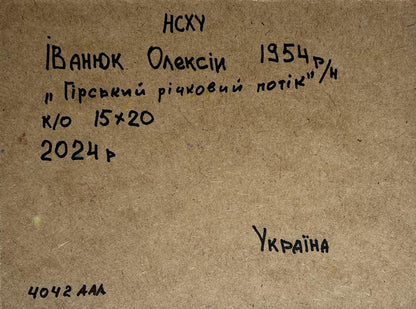 НСХУ
Іванюк Олексій 1954р/н
„Гірський річковий потік"
к/о 15×20
2024р
Україна
4042 ААА